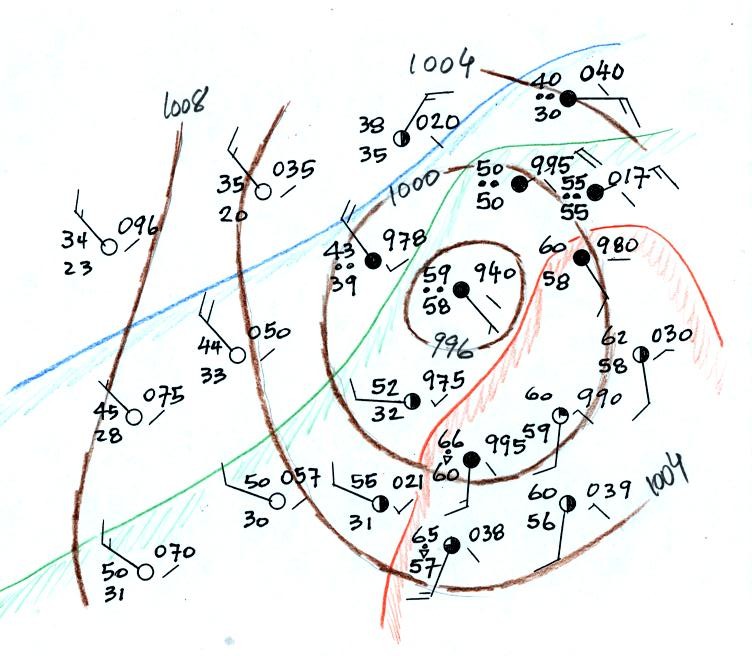 1004
40 040
30
1008
38 020
35
35 035
20
1000
50 995
50
55 017
55
34 096
23
43 978
39
59 940
58
60 980
58
996
44 050
33
62 030
58
52 975
32
45 075
28
60 990
59
66 995
60
50 057
30
55 021
31
60 039
56
1004
65 038
57
50 070
31